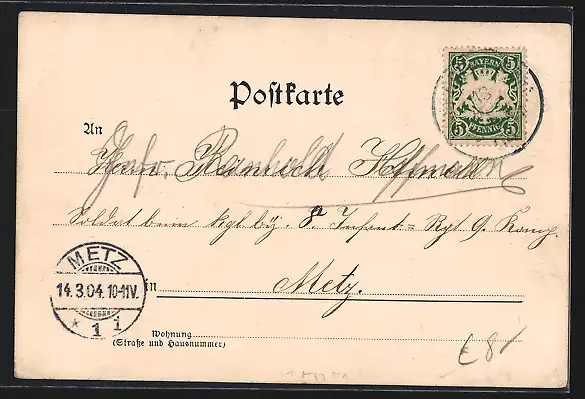 5 BAYERN 5
5 PFENNIG 5
Postkarte
An
Herrn Hoffmann
Soldat beim kgl. by. 8. Infant=Rgt 9. Komp.
METZ
14.3.04.10-11V.
* 1 i
in Metz.
Wohnung
(Straße und Hausnummer)